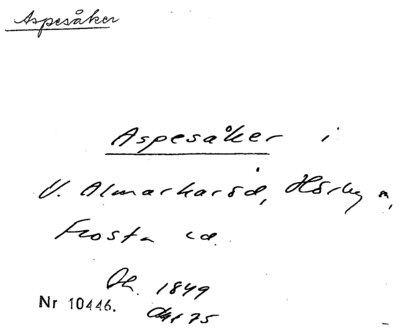 Aspesåker
Aspesåker i
V. Almarkaröd, Hörby n,
Frosta
1849
Nr 10446.